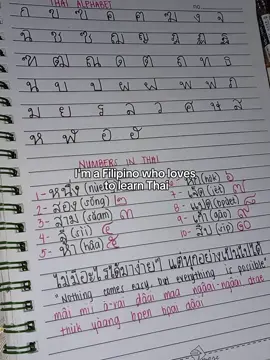 THAI ALPHABET no.
ก ข ฃ ค ฅ ฆ ง จ
ฉ ช ซ ฌ ญ ฎ ฏ ฐ
ฑ ฒ ณ ด ต ถ ท ธ
น บ ป ผ ฝ พ ฟ ภ
ม ย ร ล ว ศ ษ ส
ห ฬ อ ฮ
I'm a Filipino who loves
to learn Thai
NUMBERS IN THAI
1- หนึ่ง
2- สอง (sŏng) ๒
3- สาม (sǎam) ๓
4- สี่ (sìi) ๔
5- ห้า (hâa) ๕
(hok) ๖
7- เจ็ด (jèt) ๗
8- แปด (bpàet) ๘
9- เก้า (gâo) ๙
10- สิบ (sìp) ๑๐
ไม่มีอะไรได้มาง่ายๆ แต่ทุกอย่างเป็นไปได้
"Nothing comes easy, but everything is possible"
mâi mii à-rai dâai maa ngâai-ngâai dtàe
thúk yàang bpen bpai dâai